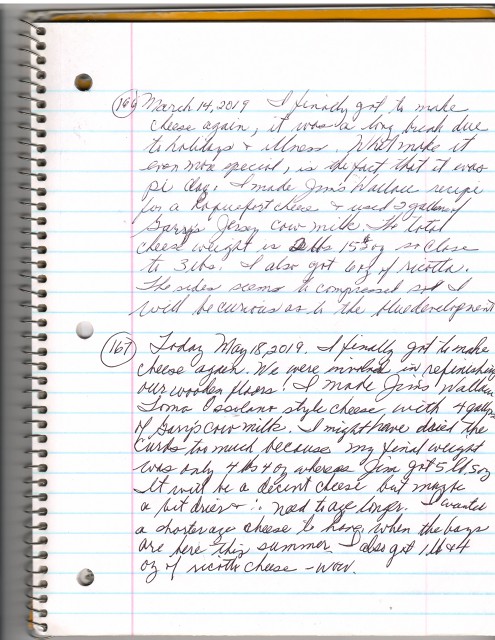 166 March 14, 2019 I finally got to make
cheese again, it was a long break due
to holidays + illness. What make it
even more special, is the fact that it was
pi day. I made Jim's Wallace recipe
for a Roquefort cheese + used 2 gallons of
Garry's Jersey cow milk. The total
cheese weight is 2 lbs 15 oz so close
to 3 lbs. I also got 6 oz of ricotta.
The sides seems to compressed so I
will be curious as to the blue development
167 Today May 18, 2019. I finally got to make
cheese again. We were involved in refinishing
our wooden floors! I made Jim's Wallace
Toma style cheese, with 4 gallons
of Garry's cow milk. I might have dried the
curds too much because my final weight
was only 4 lbs 4 oz whereas Jim got 5 lb
It will be a decent cheese but maybe
a bit drier + ∴ need to age longer. I wanted
a shorter age cheese to have when the boys
are here this summer. I also got 1 lb + 4
oz of ricotta cheese - wow.